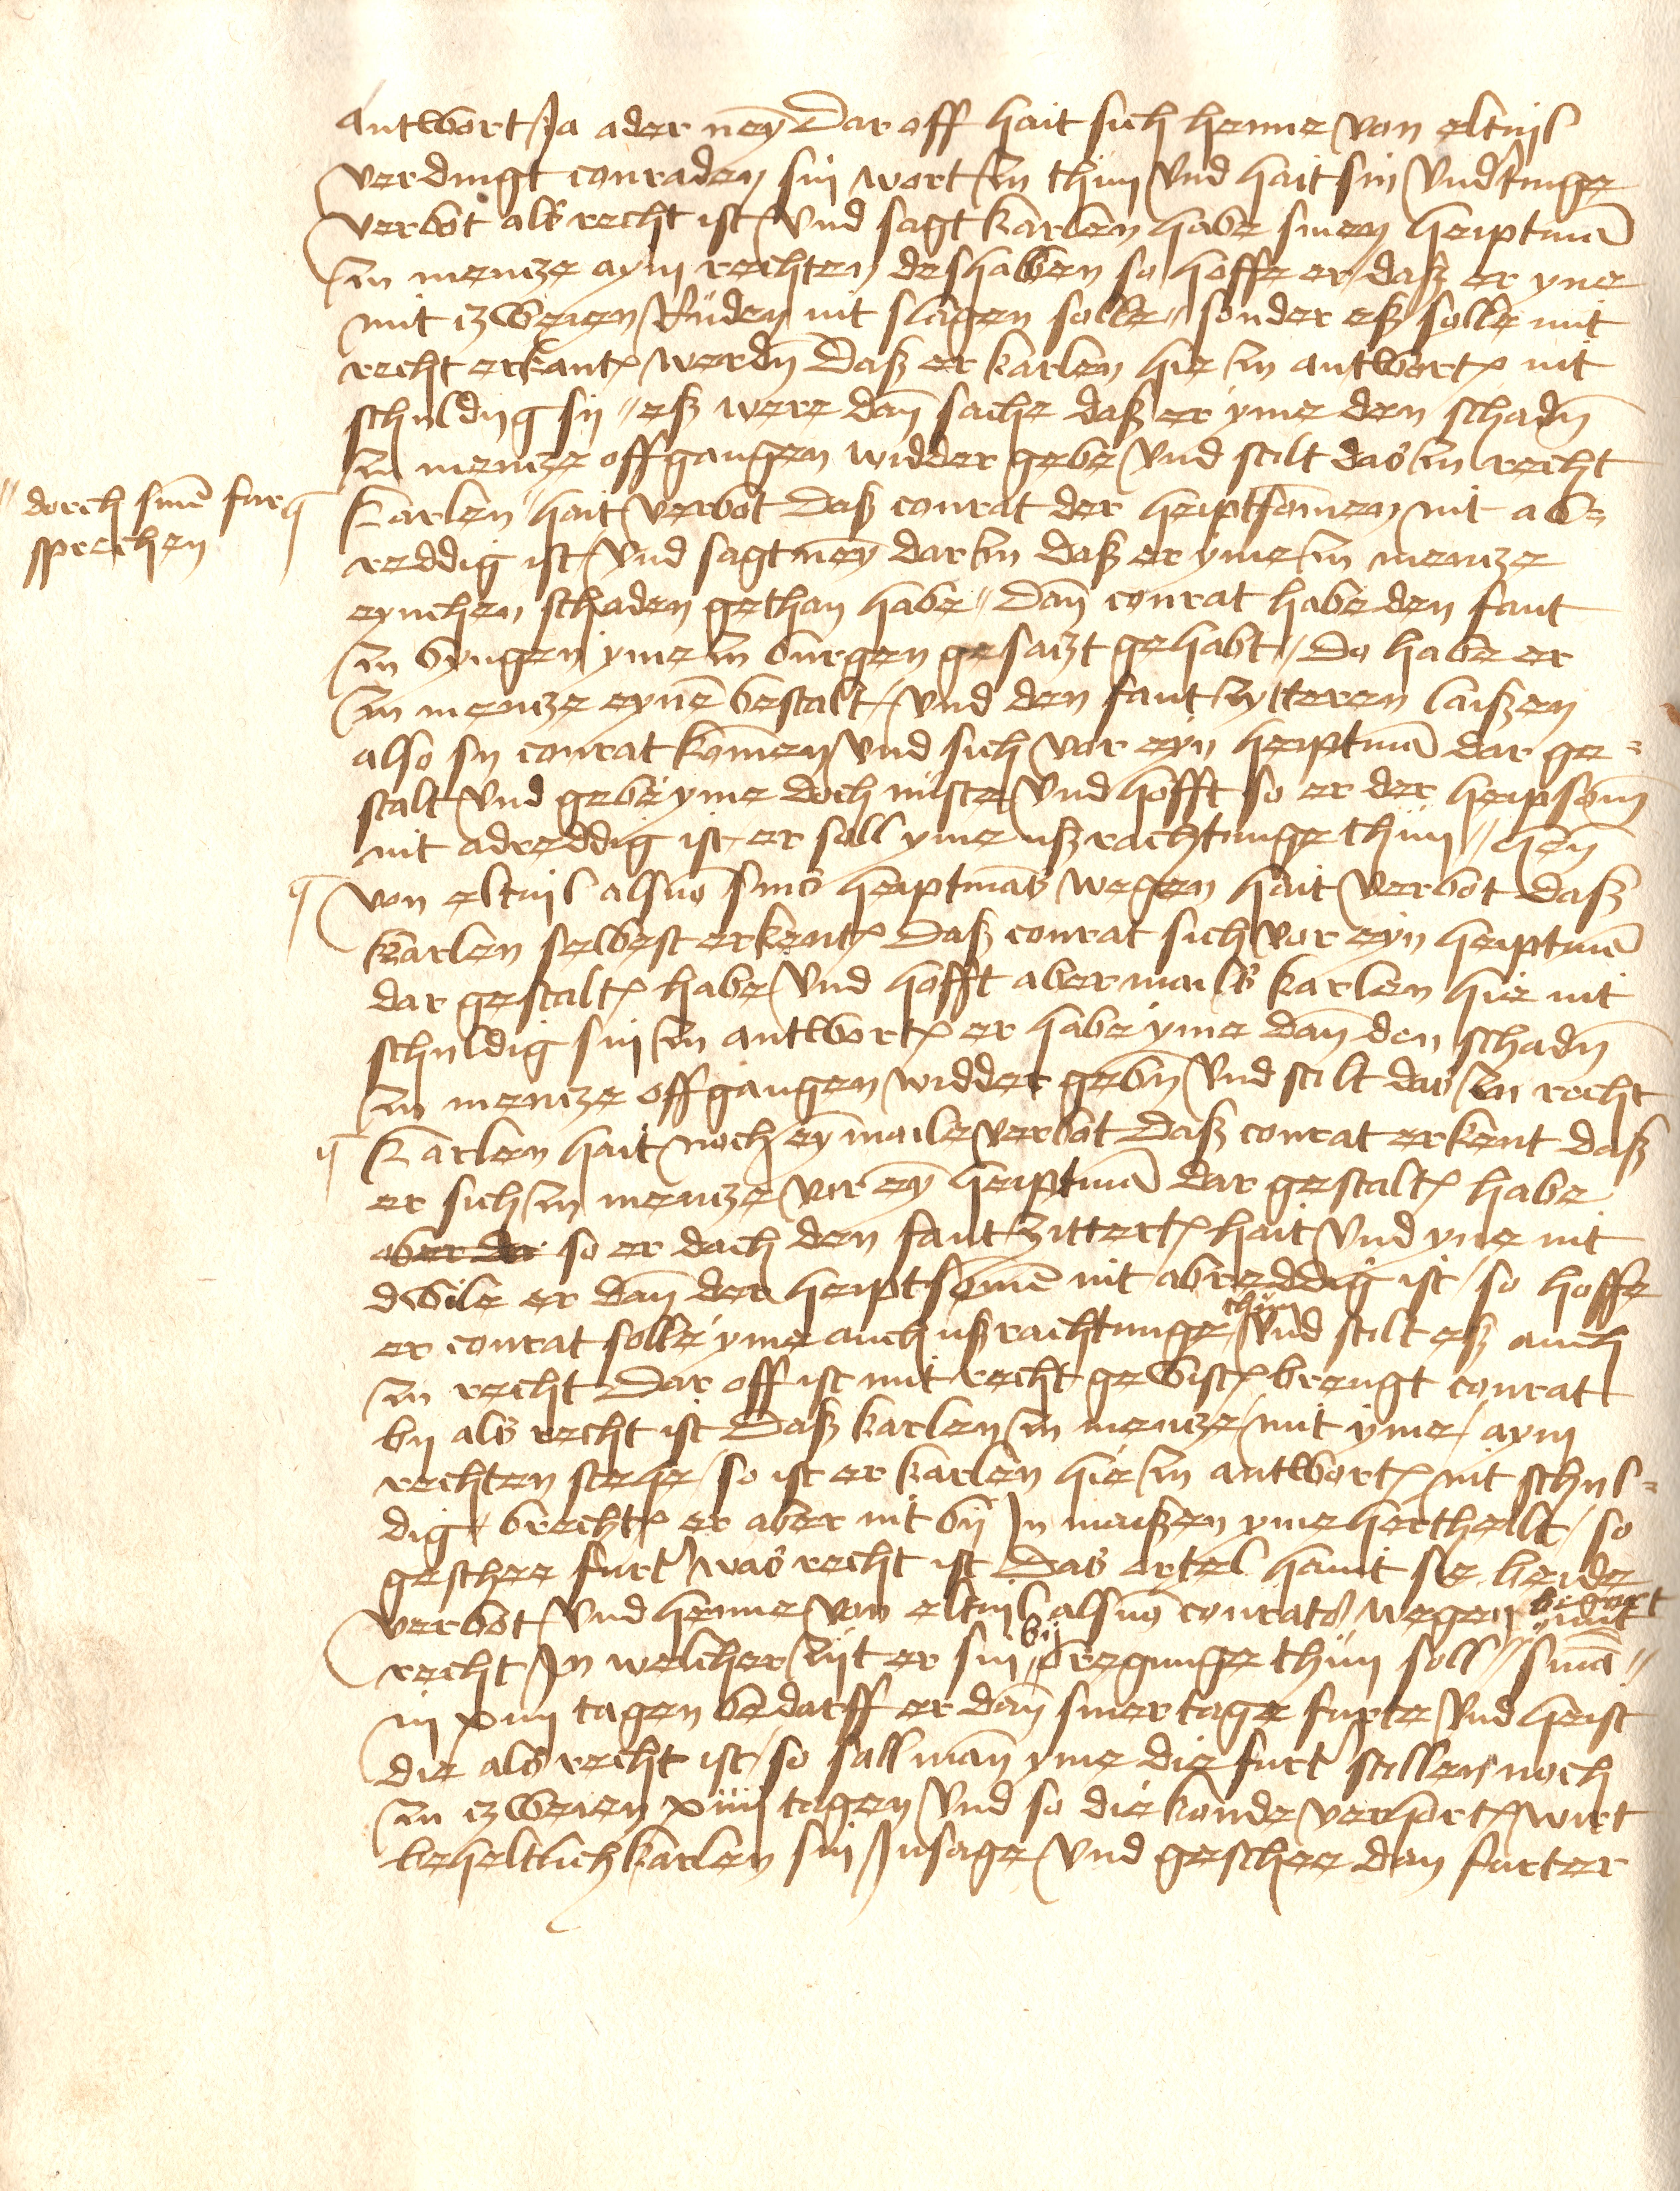 antwort Ja ader ney Dar off hait sich henne von eltuil
verdingt conraden sin wort zu thun vnd hait sin vnd(er)tinge
verbot als recht ist vnd sagt karlen habe sinen heiptma(n)
zu mentze aym rechten deshalben so hoffe er daß er yne
mit zweien Ruden nit slagen solle // sonder eß solle mit
recht erkant werdn Daß er karlen hie zu antwort nit
schuldig sij // eß were dan sache daß er yme den schadn
zu mentze offgangen widder gebe vnd stilt das zu recht
"dorch sinē fur
sprechen
Karlen " hait verbot Daß conrat der heiptsomen nit ab=
reddig ist vnd sagt ney dar zu daß er yme zu mentze
eynchen schaden gethan habe // Dan conrat habe den fant
zu byngen yme zu burgen gesatzt gehabt // Do habe er
zu mentze eynē bestalt vnd den fant zytteren laißen
also sy conrat komen vnd sich vor eyn heiptmā dar ge=
stalt vnd gebe yme doch nuste vnd hofft so er der heipsom
nit abreddig ist er soll yme ußrachtunge thun // Hen
von eltuil als vo(n) sins heiptmās wegen hait verbot daß
karlen selbest erkent Daß conrat sich vor eyn heiptmā
dar gestalt habe vnd hofft abermails karlen hie nit
schuldig sin zu antwort er habe yme dan den schadn
zu mentze offgangen widder gebn vnd stilt das zu recht
Karlen hait noch ey maile verbot Daß conrat erkent daß
er sich zu mentze vor ey heiptmā dar gestalt habe
aber der so er doch den fant zittert hait vnd yne nit
dwile er dan der heiptsomē nit abreddig ist so hoffe
er conrat solle yme auch ußrachtunge thun vnd stilt eß auch
zu recht Dar off ist mit recht gewist brengt conrat
by als recht ist Daß karlen zu mentze mit yme aym
rechten stehe so ist er karlen hie zu antwort nit schul=
dig brecht er aber nit bij In maißen yme hertheilt so
geschee furt was recht ist Das ortel haint sie beide
verbot vnd henne von eltuil als vo(n) conrats wegen begert mit
recht In welcher zijt er sin bijbregunge thun soll // sinā //
in xiiii tagen bedarff er dan siner tage furte vnd heist
die als recht ist so sall man yme die furt stillen noch
zu zweien xiiii tagen vnd so die konde verhort wirt
beheltlich karlen sin Insage vnd geschee dan furter